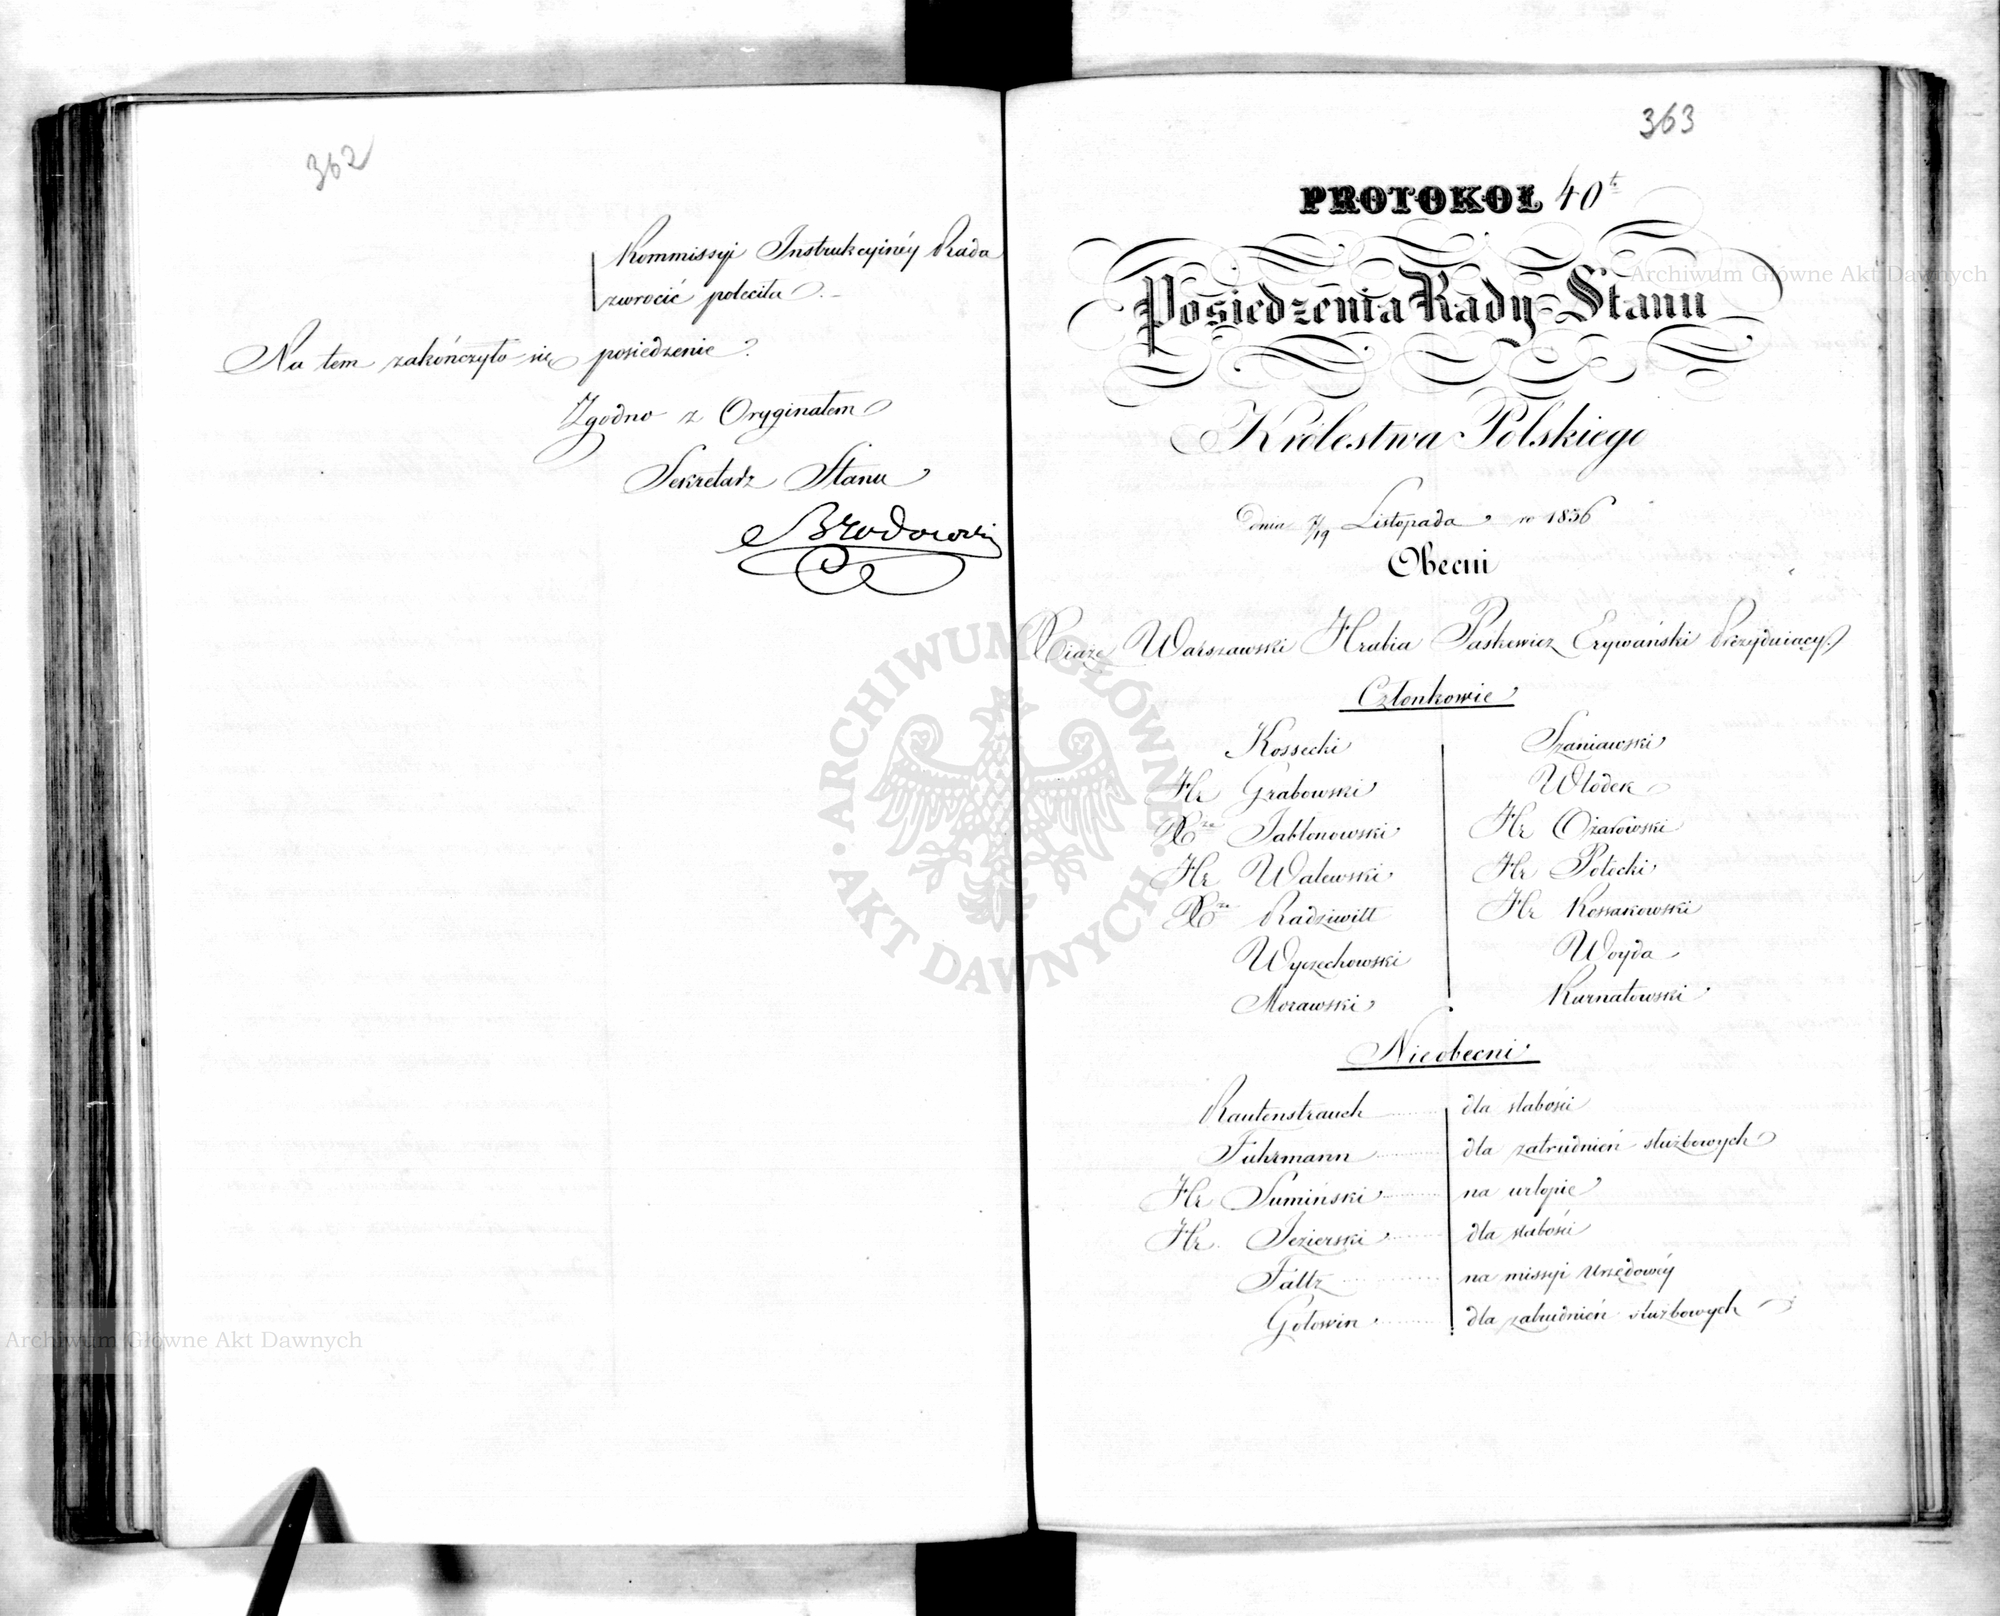 362
Kommissyi Instrukcyinéy Rada
zwrócić poleciła. –
Na tem zakończyło się posiedzenie.
Zgodno z Oryginałem
Sekretarz Stanu
Brodowski
363
PROTOKOŁ 40t.
Posiedzenia Rady Stanu
Królestwa Polskiego
Dnia 7/19 Listopada r 1836
Obecni
Xiąże Warszawski Hrabia Paskewicz Erywański Prezyduiący.
Członkowie
Kossecki Szaniawski
Hr Grabowski Włodek
Xże Jabłonowski Hr Ożarowski
Hr Walewski Hr Potocki
Xże Radziwiłł Hr Kossakowski
Wyczechowski Woyda
Morawski Kurnatowski
Nieobecni
Rautenstrauch dla słabości
Fuhrmann dla zatrudnień służbowych
Hr Sumiński na urlopie
Hr. Jezierski dla słabości
Faltz na missyi Urzędowéy
Gołowin dla zatrudnień służbowych
Archiwum Główne Akt Dawnych
ARCHIWUM GŁÓWNE AKT DAWNYCH
Archiwum Główne Akt Dawnych